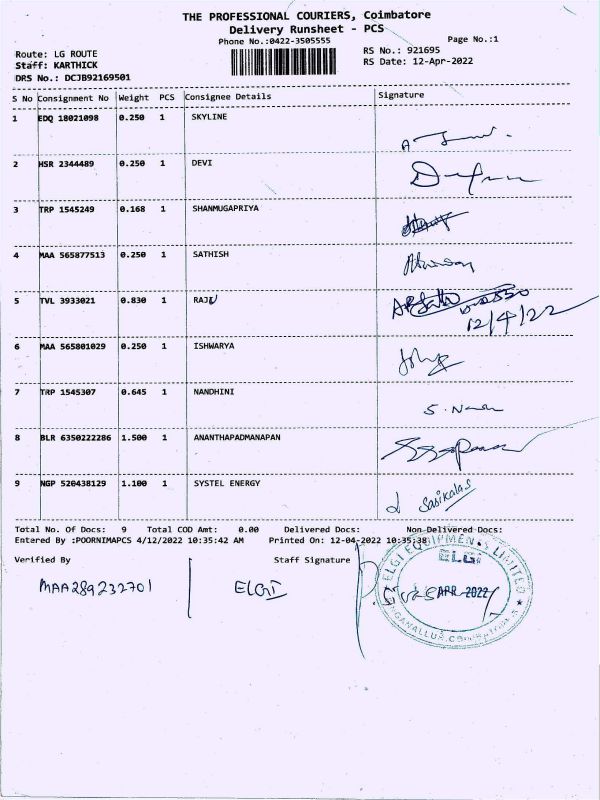 THE PROFESSIONAL COURIERS, Coimbatore
Delivery Runsheet - PCS
Phone No.:0422-3505555
Page No.:1
Route: LG ROUTE
RS No.: 921695
Staff: KARTHICK
RS Date: 12-Apr-2022
DRS No.: DCJB92169501
S No Consignment No Weight PCS Consignee Details Signature
1 EDQ 18021098 0.250 1 SKYLINE
2 HSR 2344489 0.250 1 DEVI
3 TRP 1545249 0.168 1 SHANMUGAPRIYA
4 MAA 565877513 0.250 1 SATHISH
5 TVL 3933021 0.830 1 RAJU
12/4/22
6 MAA 565801029 0.250 1 ISHWARYA
7 TRP 1545307 0.645 1 NANDHINI
8 BLR 6350222286 1.500 1 ANANTHAPADMANAPAN
9 NGP 520438129 1.100 1 SYSTEL ENERGY
Sasikalas
Total No. Of Docs: 9 Total COD Amt: 0.00 Delivered Docs: Non-Delivered Docs:
Entered By :POORNIMAPCS 4/12/2022 10:35:42 AM Printed On: 12-04-2022 10:35:38
Verified By Staff Signature
MAA289232701 ELGI
ELGI EQUIPMENTS LIMITED
ELGi
APR 2022